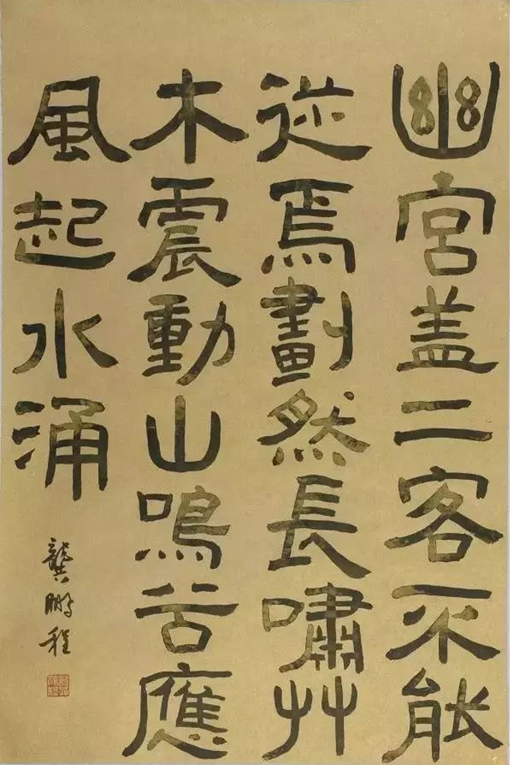 幽宮盖二客不能
從焉劃然長嘯艸
木震動山鳴谷應
風起水涌
龔鵬程